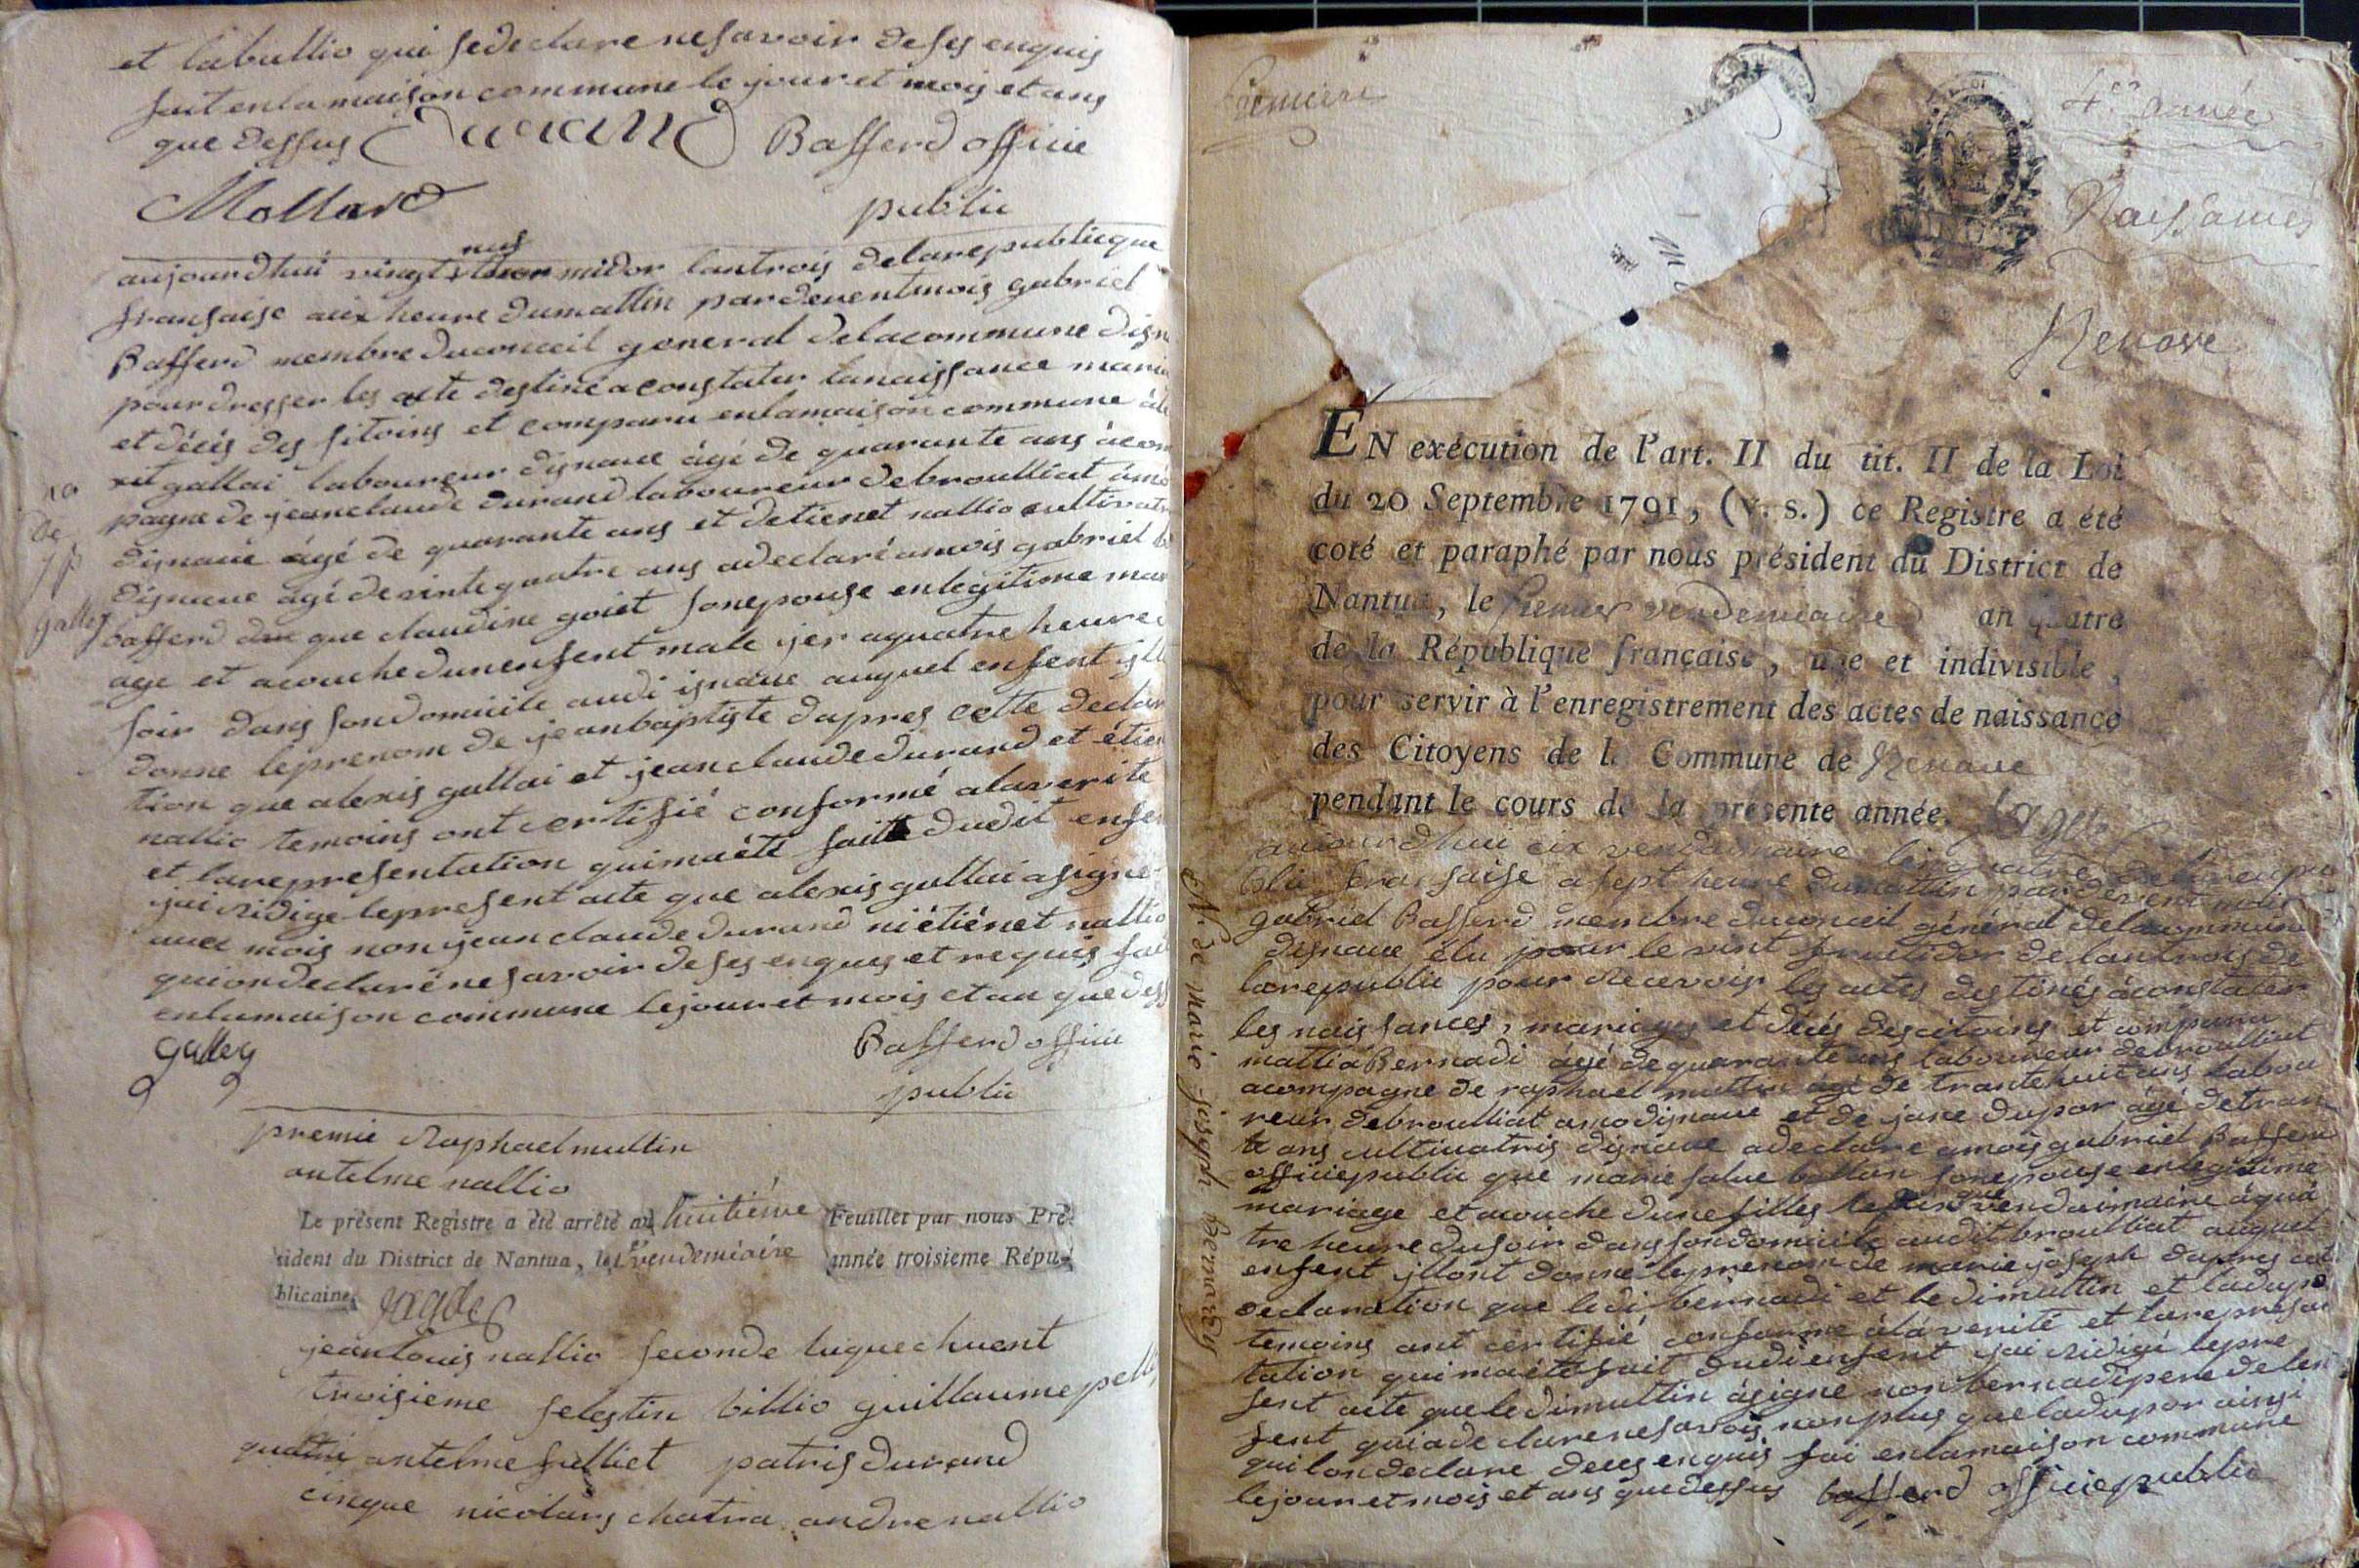 et laballio qui sedeclare nesavoir deses enquis
fait enla maison commune le jour et mois et ans
que dessus Durand Bafferd officie
Mollard publié
nuf
aujourdhui vingt thermidor lantrois delarepublicque
fransaise aux heure dumattin pardevent mois gabriel
Bafferd membre duconceil general delacommune
pour dresser les acte destiné aconstater lanaissance
et décés des sitoins et comparu enlamaison commune
gallai laboureur dignaue âgé de quarante ans
pagne de jeanclaude durand laboureur debroulliat
dignaue âgé de quarante ans et detienet nallio
dignaue âgé detrinte quatre ans adeclaré amois gabriel
bafferd que claudine goiet sonepouse enlegitime
age et acouche dunenfent male ier aquatre heure
soir dans sondomicile audi ignaue auquel enfent
donne leprenom de jeanbaptiste dapres cette
tion que alexis gallai et jean claude durand et
nallio temoins ont certifié conformé alaverité
et larepresentation quimaété faitte dudit
jai ridige lepresent acte que alexis gallai a signé
avec mois non jean claude durand ni étiénet nallio
quiondeclaré nesavoir deses enquis et requis
enlamaison commune lejour et mois et an que
galley Bafferd officie
publié
premie Raphael multin
antelme nallio
Le présent Registre a été arrêté au huitiéme Feuillet par nous Pré-
sident du District de Nantua, le 1er vendemiaire année troisieme Répu-
blicaine. Jagde
jeanlouis nallio seconde luque chuent
troisieme selestin billio guillaume
antelme julliet patris durand
cinque nicolais chatra andre nallio
premiere
4e année
Naissances
Nenave
EN exécution de l'art. II du tit. II de la Loi
du 20 Septembre 1791, (v. s.) ce Registre a été
coté et paraphé par nous président du District de
Nantua, le premier vendemiaire an quatre
de la République française, une et indivisible,
pour servir à l'enregistrement des actes de naissance
des Citoyens de la Commune de Nenave
pendant le cours de la présente année. Jagde
aujourdhui six vendemiaire lanquatre delarepu
blic fransaise a sept heure dumattin pardevent mois
gabriel Bafferd membre duconceil général delacommune
dignaue élu pour le vint fruttidor de lantrois de
larepublic pour recevoir les actes destinés áconstater
les naissances, mariages et décés descitoins et comparu
mattiá Bernadi âgé dequarante ans laboureur debroulliat
acompagne de raphael multin agé de trantehuit ans labou
reur debroulliat amodignaue et de jane dupor âgé detran
te ans cultivatris dignaue adeclare amois gabriel Bafferd
officiepublic que marie salue ballan sonepouse enlegitime
mariage et acouche dunefilles vendaimaire áqua
tre heure dusoir dans sondomicile audit broulliat auquel
enfent illont donne leprenom de marie joseph dapres cet
declaration que ledi bernadi et ledimultin et ladupo
temoins ont certifié conforme álá verité et larepresan
tation qui maété fait dudi enfent jai ridigé lepre
sent acte queledimultin ásigne non bernadi pere delen
fent quiadeclare nesavoir nonplus queladupor ainsi
quilondeclare deces enquis fai enlamaison commune
lejour et mois et ans que dessus bafferd officiepublic
N. de marie joseph Bernardy